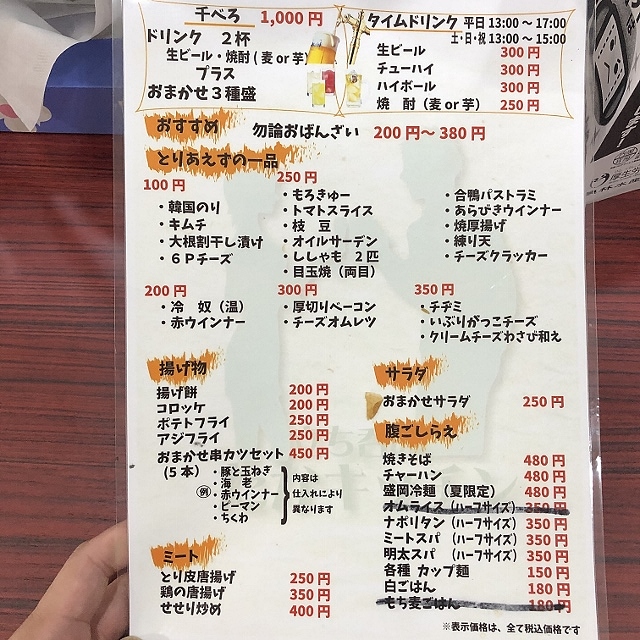 千べろ 1,000円
ドリンク 2杯
生ビール・焼酎(麦or芋)
プラス
おまかせ3種盛
タイムドリンク 平日13:00〜17:00
土・日・祝13:00〜15:00
生ビール 300円
チューハイ 300円
ハイボール 300円
焼 酎（麦or芋） 250円
おすすめ 勿論おばんざい 200円〜380円
とりあえずの一品
100円
・韓国のり
・キムチ
・大根割干し漬け
・6Pチーズ
250円
・もろきゅー
・トマトスライス
・枝 豆
・オイルサーデン
・ししゃも 2匹
・目玉焼（両目）
・合鴨パストラミ
・あらびきウインナー
・焼厚揚げ
・練り天
・チーズクラッカー
200円
・冷 奴（温）
・赤ウインナー
300円
・厚切りベーコン
・チーズオムレツ
350円
・チヂミ
・いぶりがっこチーズ
・クリームチーズわさび和え
揚げ物
揚げ餅 200円
コロッケ 200円
ポテトフライ 250円
アジフライ 250円
おまかせ串カツセット 450円
(5本)
例
・豚と玉ねぎ
・海 老
・赤ウインナー
・ピーマン
・ちくわ
内容は
仕入れにより
異なります
ミート
とり皮唐揚げ 250円
鶏の唐揚げ 350円
せせり炒め 400円
サラダ
おまかせサラダ 250円
腹ごしらえ
焼きそば 480円
チャーハン 480円
盛岡冷麺（夏限定） 480円
オムライス（ハーフサイズ） 350円
ナポリタン（ハーフサイズ） 350円
ミートスパ（ハーフサイズ） 350円
明太スパ（ハーフサイズ） 350円
各種 カップ麺 150円
白ごはん 180円
もち麦ごはん 180円
※表示価格は、全て税込価格です